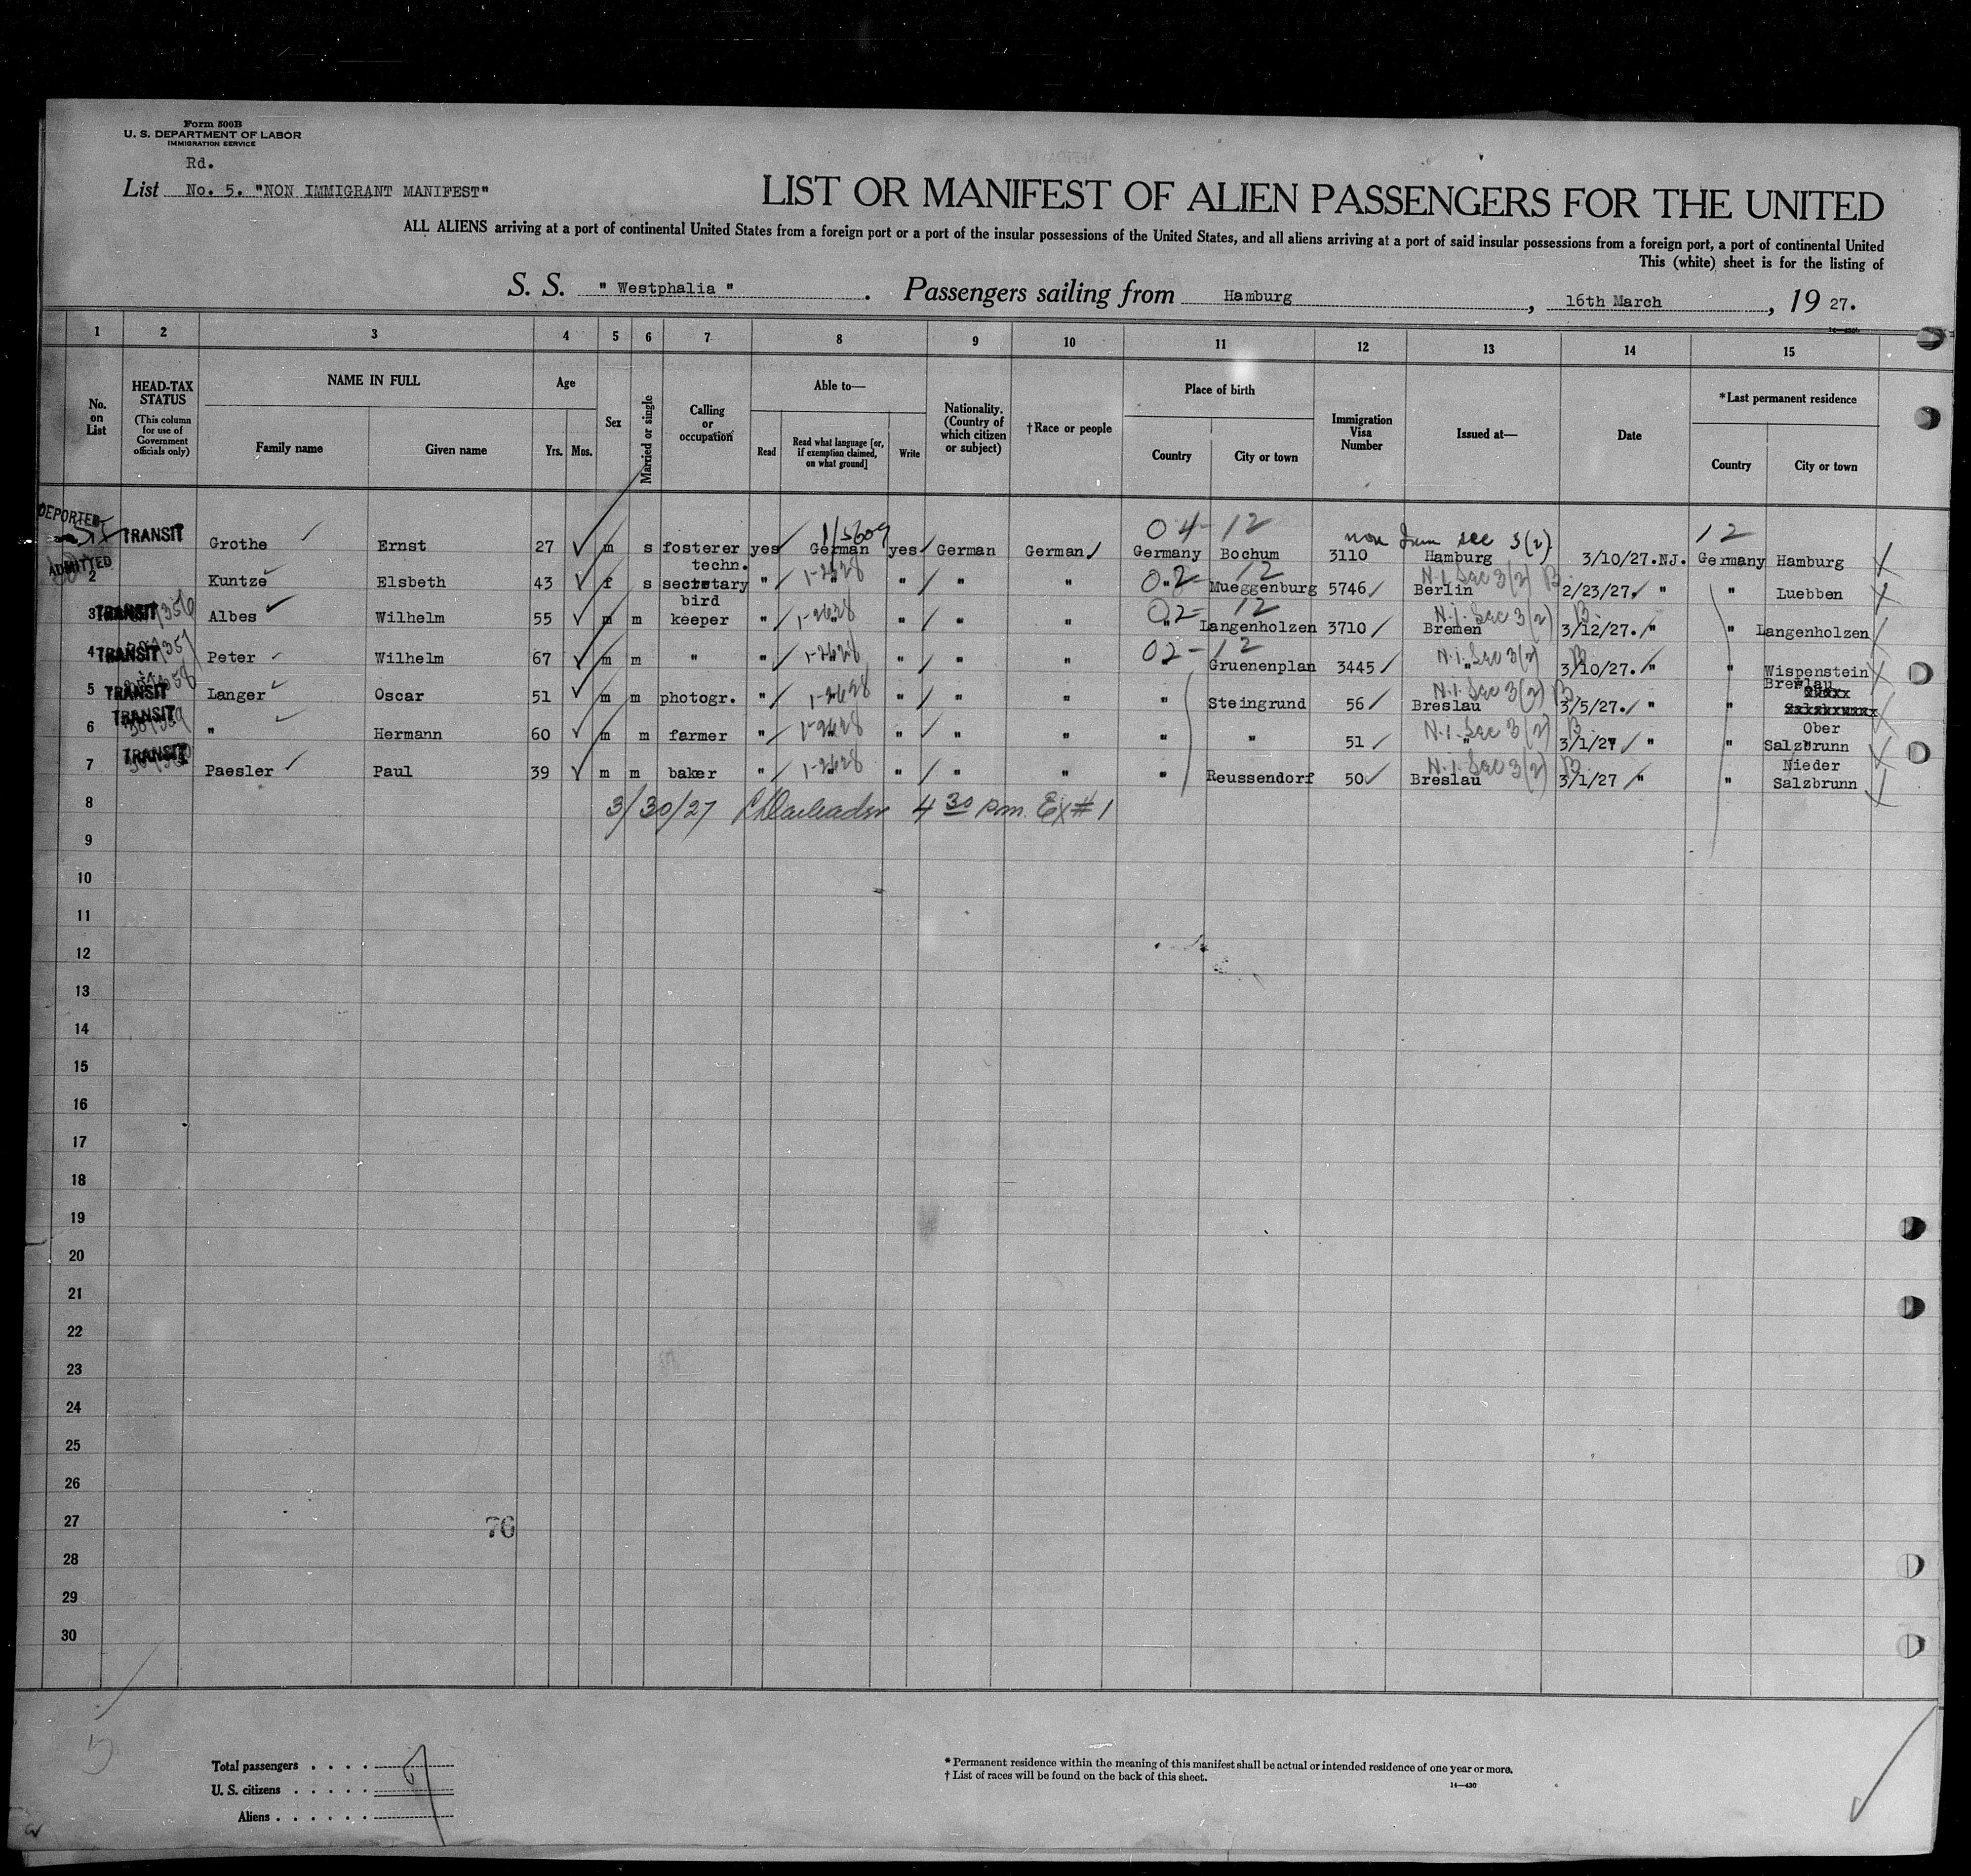 Form 500B
U. S. DEPARTMENT OF LABOR
IMMIGRATION SERVICE
Rd.
List No. 5. "NON IMMIGRANT MANIFEST"
LIST OR MANIFEST OF ALIEN PASSENGERS FOR THE UNITED
ALL ALIENS arriving at a port of continental United States from a foreign port or a port of the insular possessions of the United States, and all aliens arriving at a port of said insular possessions from a foreign port, a port of continental United
This (white) sheet is for the listing of
S. S. " Westphalia " . Passengers sailing from Hamburg , 16th March , 19 27.
1 2 3 4 5 6 7 8 9 10 11 12 13 14 15
No. on List
HEAD-TAX STATUS
(This column for use of Government officials only)
NAME IN FULL
Family name Given name
Age
Yrs. Mos.
Sex
Married or single
Calling or occupation
Able to—
Read Read what language [or, if exemption claimed, on what ground] Write
Nationality. (Country of which citizen or subject)
†Race or people
Place of birth
Country City or town
Immigration Visa Number
Issued at—
Date
*Last permanent residence
Country City or town
DEPORTED
1/5609 04-12 non Imm sec 3(2). 12
TRANSIT Grothe Ernst 27 m s fosterer yes German yes German German Germany Bochum 3110 Hamburg 3/10/27. N.J. Germany Hamburg
ADMITTED techn. 02- 12 N.I. Sec 3(2) B
2 Kuntze Elsbeth 43 f s secretary " " " " " " Mueggenburg 5746 Berlin 2/23/27. " " Luebben
bird 02- 12 N.I. Sec 3(2) B
3 TRANSIT Albes Wilhelm 55 m m keeper " " " " " " Langenholzen 3710 Bremen 3/12/27. " " Langenholzen
02-12 N.I. Sec 3(2) B
4 TRANSIT Peter Wilhelm 67 m m " " " " " " Gruenenplan 3445 " 3/10/27. " " Wispenstein
N.I. Sec 3(2) B Breslau
5 TRANSIT Langer Oscar 51 m m photogr. " " " " " Steingrund 56 Breslau 3/5/27. " "
TRANSIT N.I. Sec 3(2) B Ober
6 " Hermann 60 m m farmer " " " " " " " 51 " 3/1/27 " " Salzbrunn
TRANSIT N.I. Sec 3(2) B Nieder
7 Paesler Paul 39 m m baker " " " " " " Reussendorf 50 Breslau 3/1/27 " " Salzbrunn
8 3/30/27 4 30 pm. Ex # 1
9
10
11
12
13
14
15
16
17
18
19
20
21
22
23
24
25
26
27 76
28
29
30
Total passengers . . . .
U. S. citizens . . . . . .
Aliens . . . . . .
* Permanent residence within the meaning of this manifest shall be actual or intended residence of one year or more.
† List of races will be found on the back of this sheet.
14—430